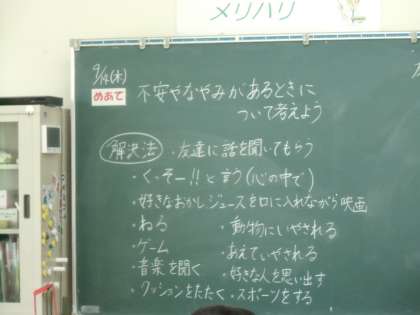 メリハリ
9/14(木)
めあて 不安やなやみがあるときに
ついて考えよう
解決法 ・友達に話を聞いてもらう
・くっそー!!と言う(心の中で)
・好きなおかしジュースを口に入れながら映画
・ねる ・動物にいやされる
・ゲーム ・あえていやされる
・音楽を聞く ・好きな人を思い出す
・クッションをたたく ・スポーツをする